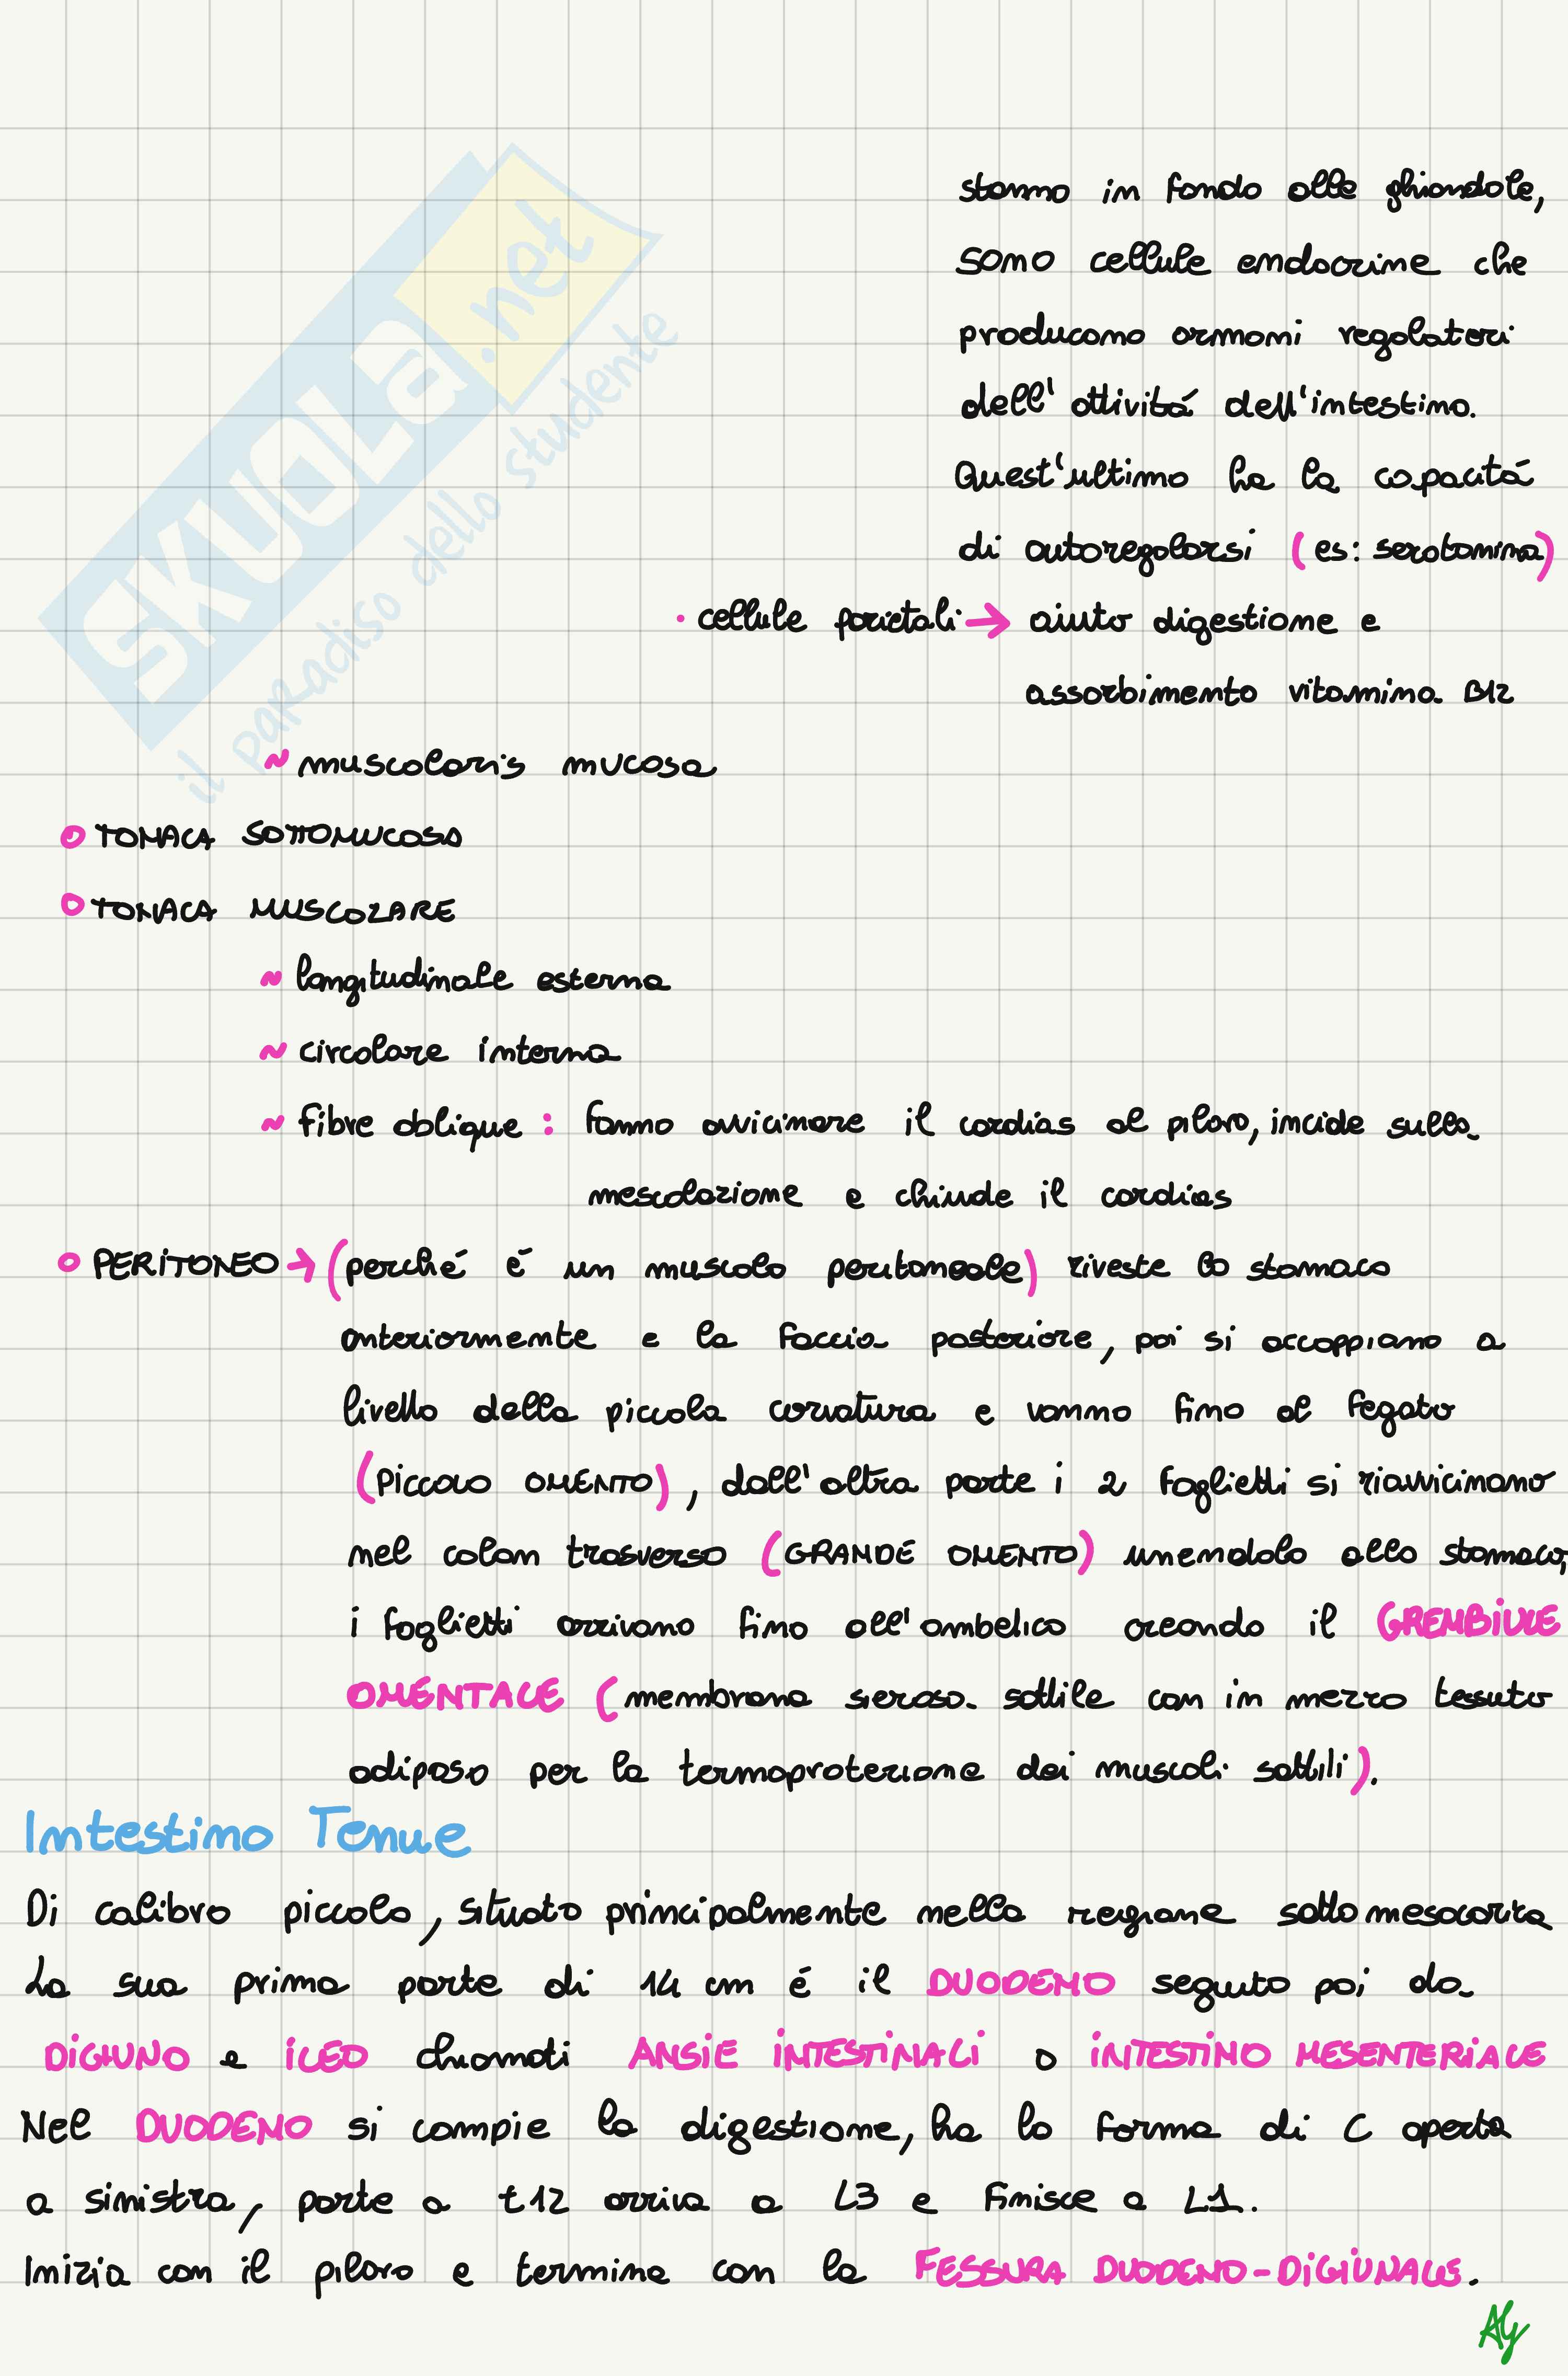 SKUOLA.net
il paradiso dello studente
stanno in fondo alle ghiandole,
sono cellule endocrine che
producono ormoni regolatori
dell'attivitá dell'intestino.
Quest'ultimo ha la capacitá
di autoregolarsi (es: serotonina)
· cellule parietali → aiuto digestione e
assorbimento vitamina B12
~ muscolaris mucosa
o TONACA SOTTOMUCOSA
o TONACA MUSCOLARE
~ longitudinale esterna
~ circolare interna
~ fibre oblique : fanno avvicinare il cardias al piloro, incide sulla
mescolazione e chiude il cardias
o PERITONEO → (perché é un muscolo peritoneale) riveste lo stomaco
anteriormente e la faccia posteriore, poi si accoppiano a
livello della piccola corvatura e vanno fino al fegato
(PICCOLO OMENTO), dall'altra parte i 2 foglietti si riavvicinano
nel colon trasverso (GRANDE OMENTO) unendolo allo stomaco,
i foglietti arrivano fino all'ombelico creando il GREMBIULE
OMENTALE (membrana sierosa sottile con in mezzo tessuto
adiposo per la termoprotezione dei muscoli sottili).
Intestino Tenue
Di calibro piccolo, situato principalmente nella regione sottomesocorica
La sua prima parte di 14 cm é il DUODENO seguito poi da
DIGIUNO e ILEO chiamati ANSIE INTESTINALI o INTESTINO MESENTERIALE
Nel DUODENO si compie la digestione, ha la forma di C aperta
a sinistra, parte a t12 arriva a L3 e finisce a L1.
Inizia con il piloro e termina con la FESSURA DUODENO-DIGIUNALE.
Aly